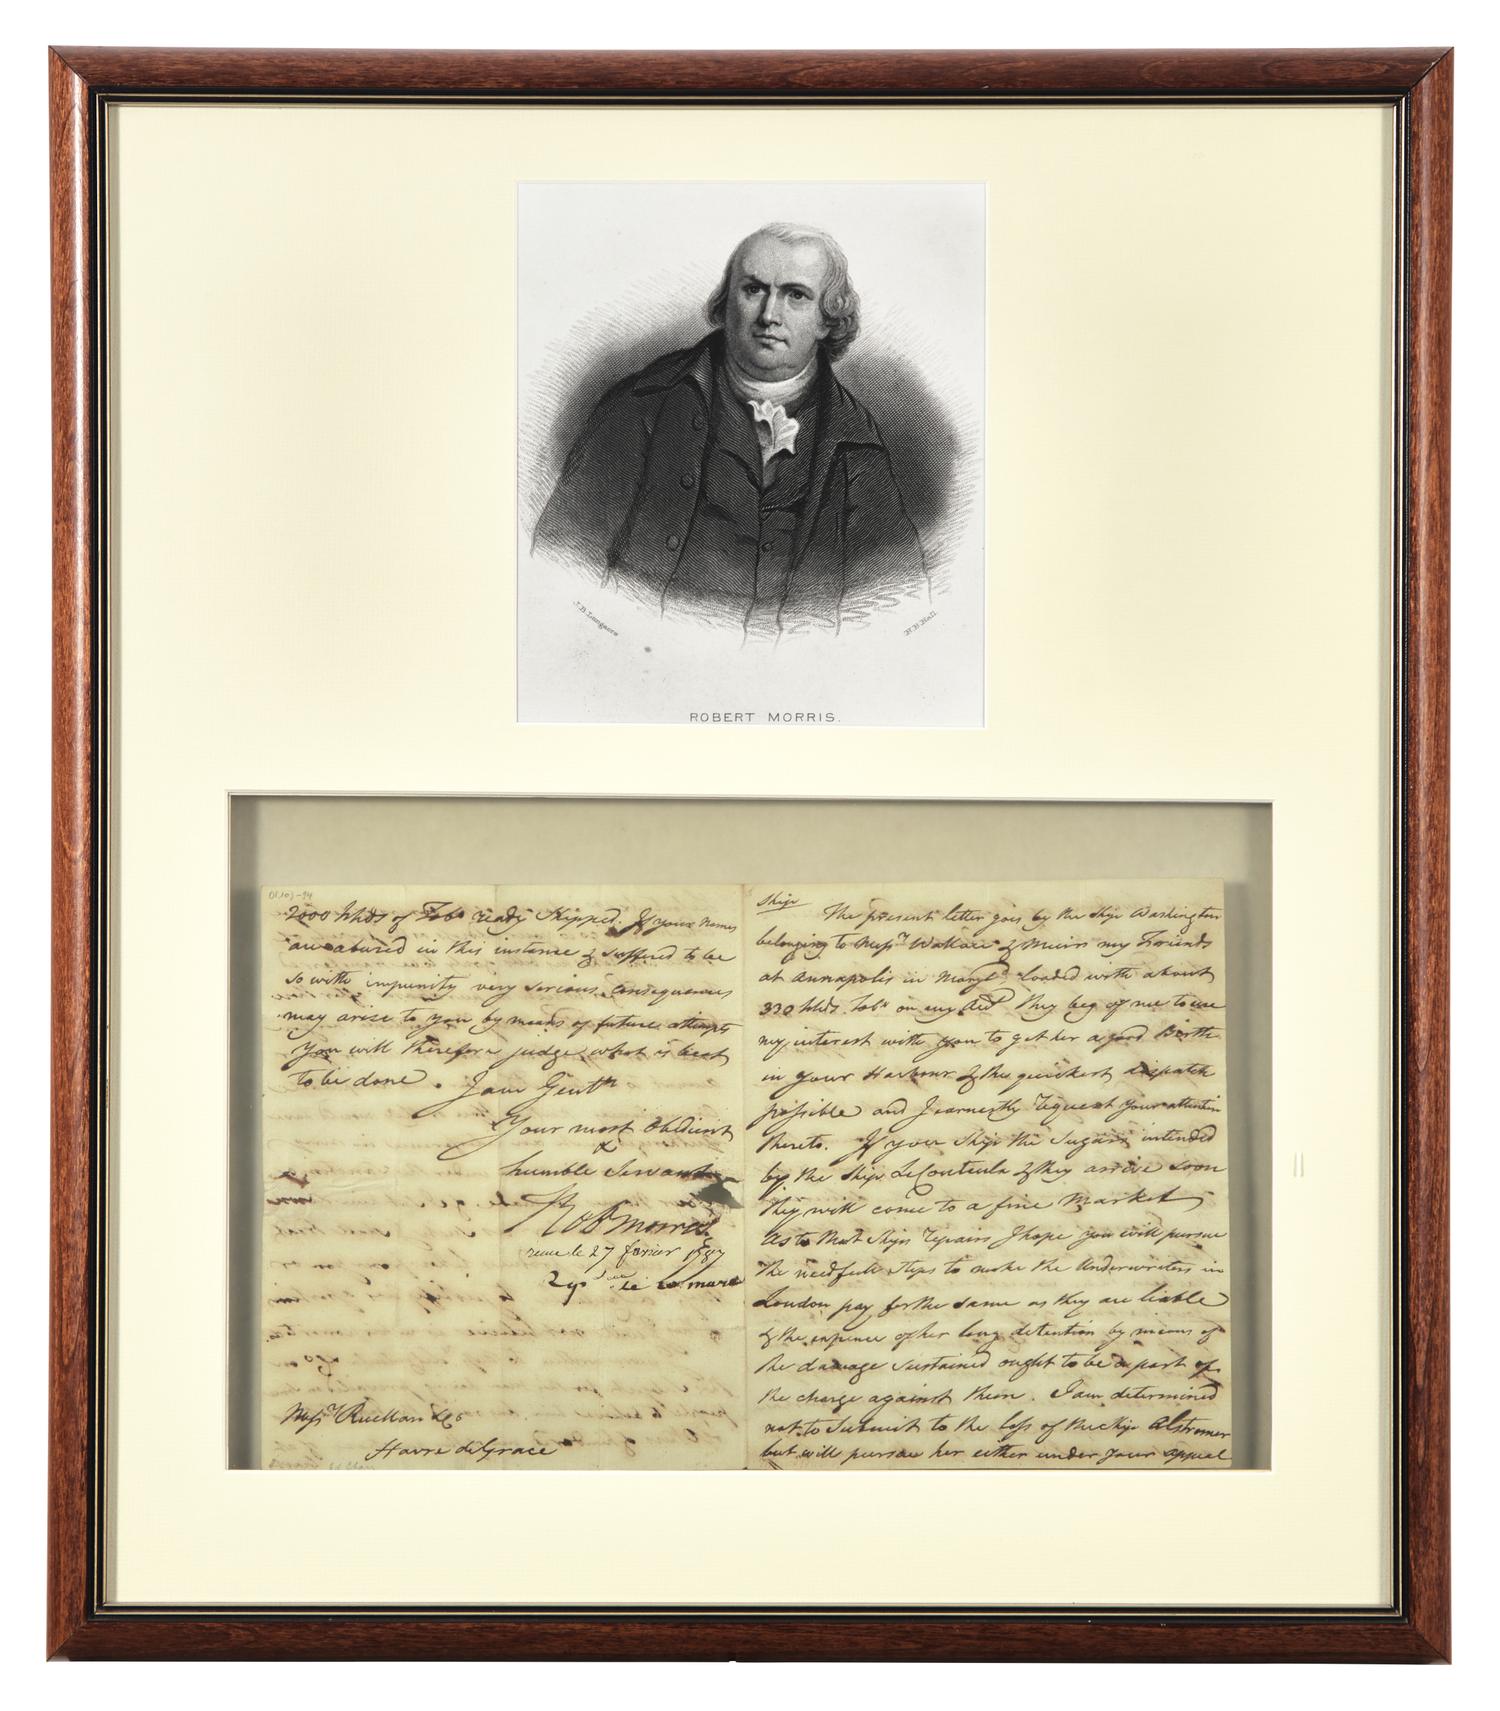 J.B. Longacre
H.B. Hall
ROBERT MORRIS.
2000 hhds of Tobo ready Shipped. If your names
are abused in this instance & suffered to be
so with impunity very serious Consequences
may arise to you by means of future attempts
You will therefore judge what is best
to be done. I am Gentn
Your most Obedient
&
humble Servant
RobMorris
le 27 fevrier 1787
le mars
Messrs Ruellan & Co
Havre de Grace
Ship
The present letter goes by the Ship Washington
belonging to Messrs Wallace & Muirs my Friends
at Annapolis in Maryld loaded with about
330 hhds. Tobo on my Acct They beg of me to use
my interest with you to get her a good Birth
in your Harbour & the quickest dispatch
possible and I earnestly request your attention
thereto. If your Ship the Sugars intended
by the Ship LeCouteulx & they arrive soon
they will come to a fine Market
As to that Ships repairs I hope you will pursue
the needfull steps to make the Underwriters in
London pay for the same as they are liable
& the expence of her long detention by means of
the damage sustained ought to be a part of
the charge against them. I am determined
not to submit to the loss of the Ship Alstromer
but will pursue her either under your appeal